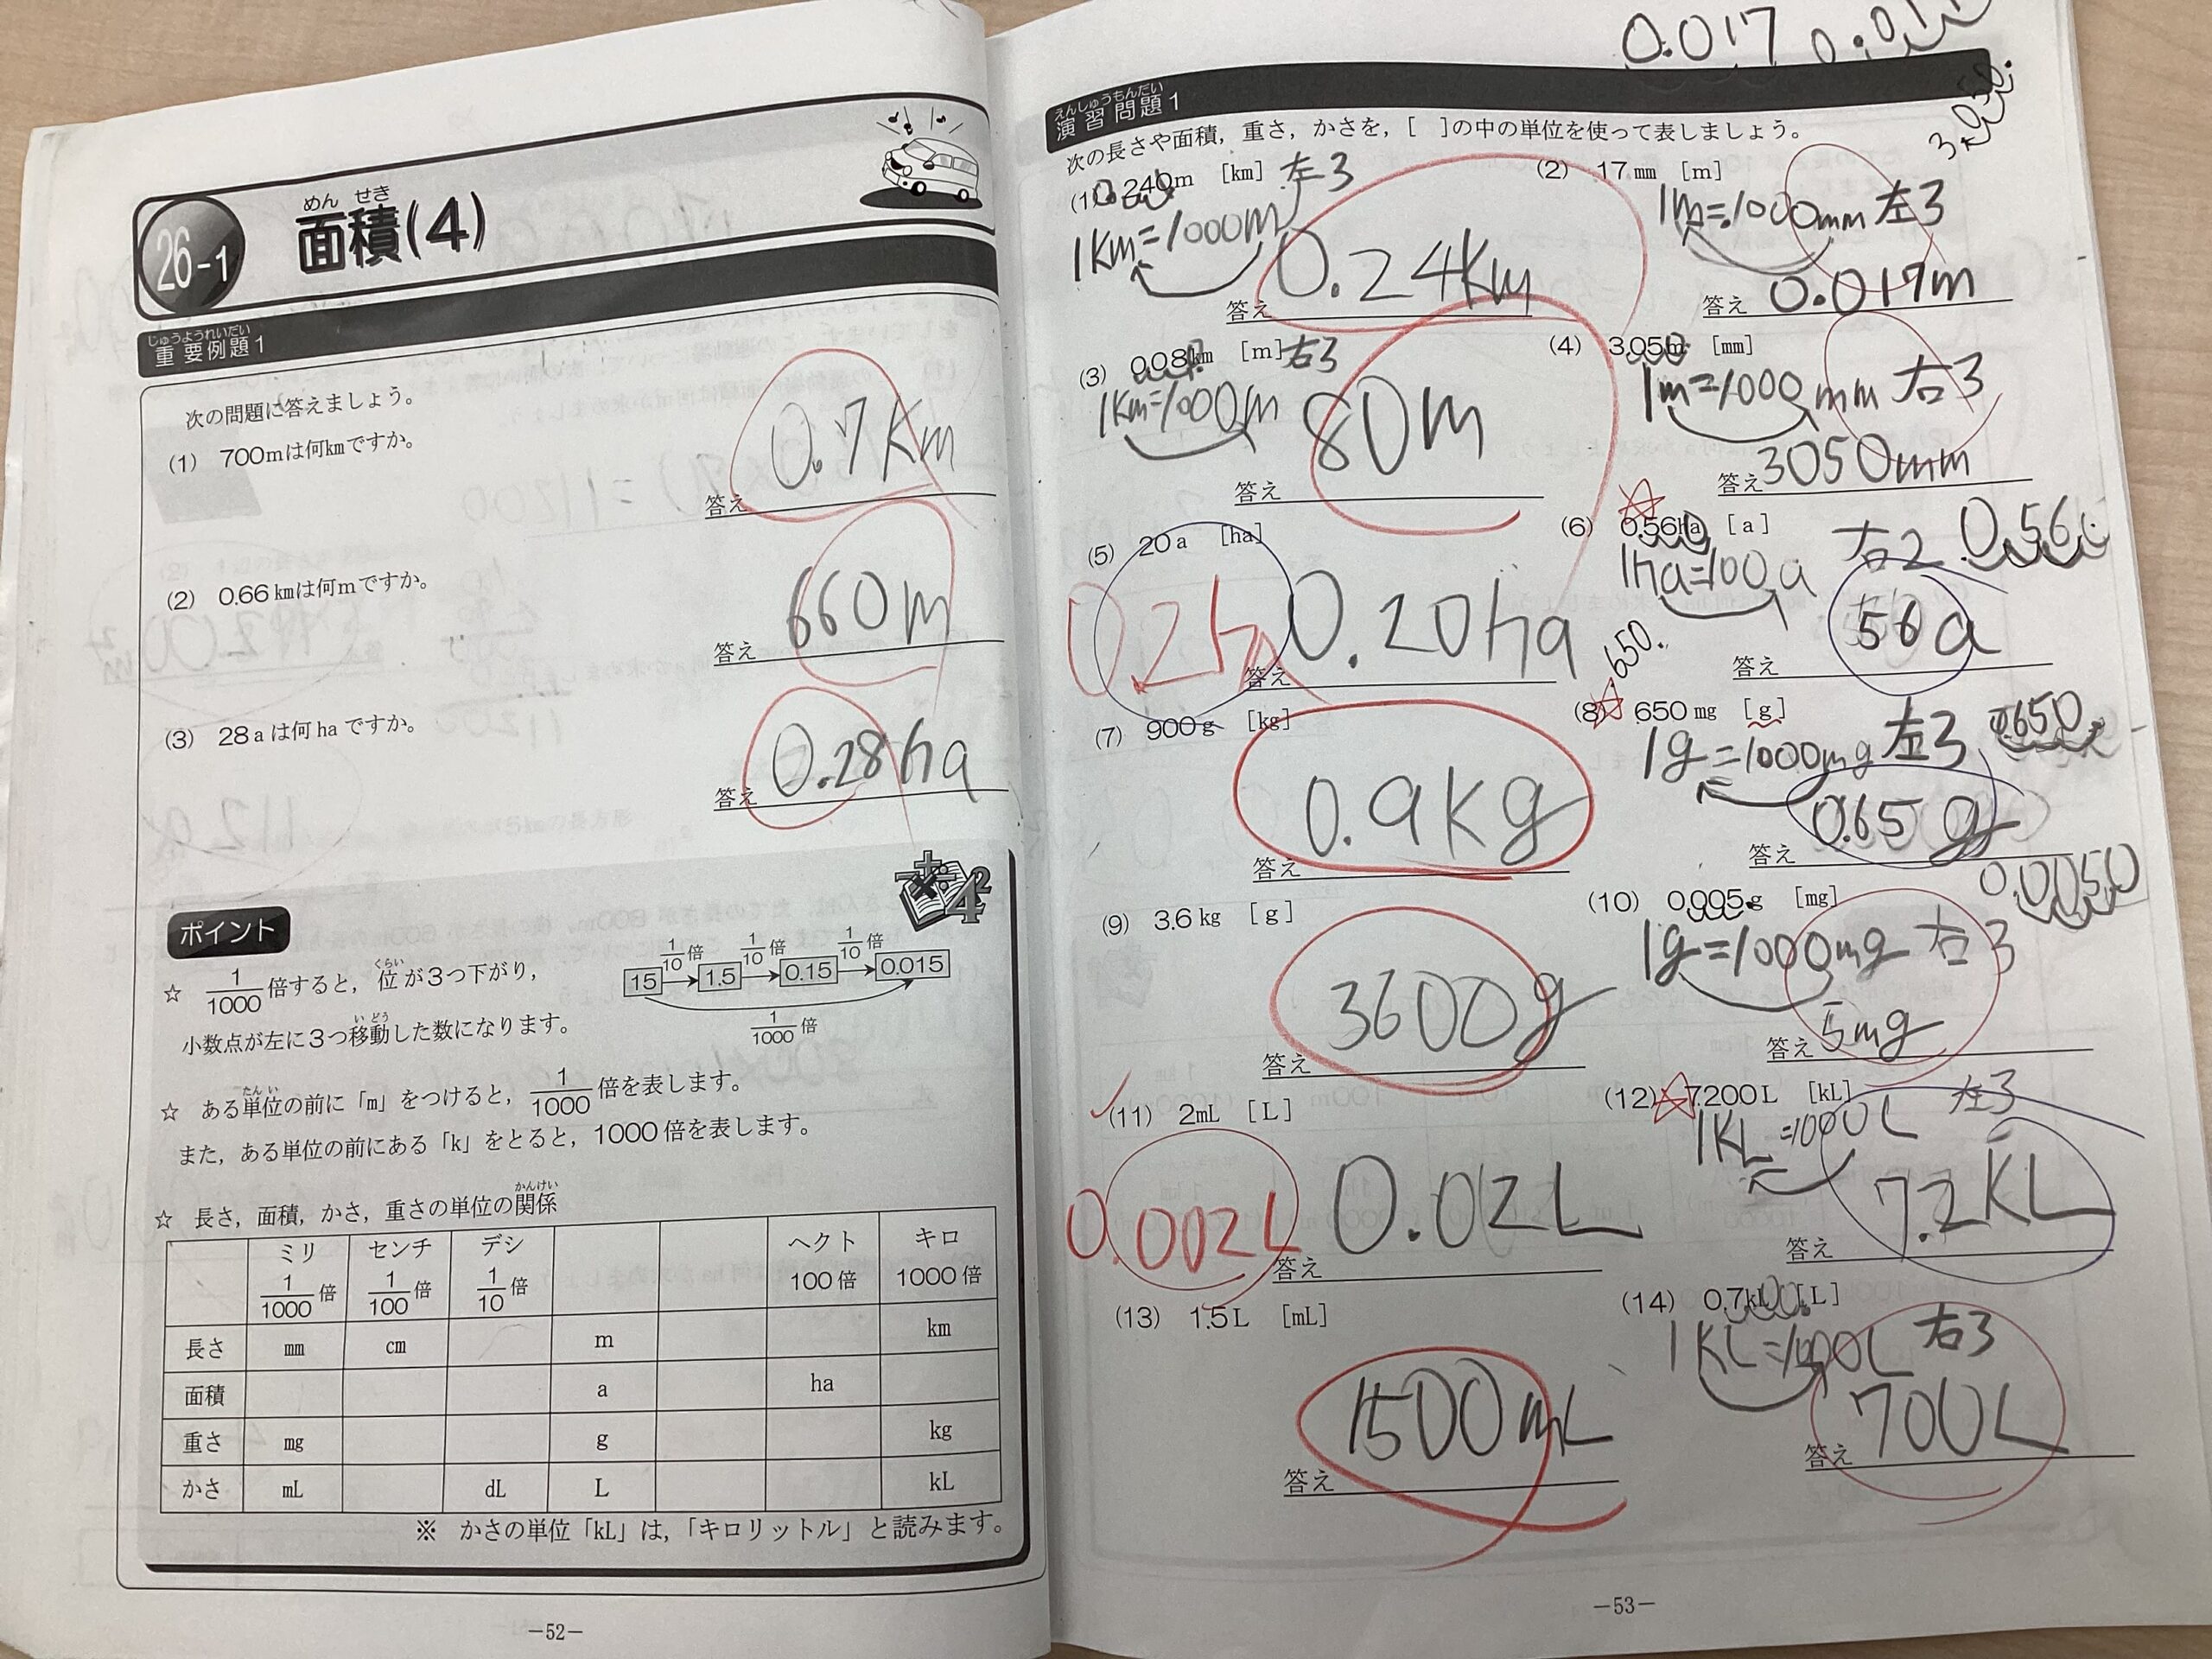 26-1
めん せき
面積(4)
じゅうようれいだい
重要例題1
次の問題に答えましょう。
(1) 700mは何kmですか。
答え 0.7Km
(2) 0.66kmは何mですか。
答え 660m
(3) 28aは何haですか。
答え 0.28ha
ポイント
☆ 1/1000倍すると，位が3つ下がり，
くらい
小数点が左に3つ移動した数になります。
い どう
1/10倍 1/10倍 1/10倍
15 → 1.5 → 0.15 → 0.015
1/1000倍
☆ ある単位の前に「m」をつけると，1/1000倍を表します。
たんい
また，ある単位の前にある「k」をとると，1000倍を表します。
☆ 長さ，面積，かさ，重さの単位の関係
かんけい
ミリ センチ デシ ヘクト キロ
1/1000倍 1/100倍 1/10倍 100倍 1000倍
長さ mm cm m km
面積 a ha
重さ mg g kg
かさ mL dL L kL
※ かさの単位「kL」は，「キロリットル」と読みます。
－52－
0.017
えんしゅうもんだい
演習問題1
次の長さや面積，重さ，かさを，[ ]の中の単位を使って表しましょう。
(1) 240m [km] 左3
1Km=1000m
答え 0.24Km
(2) 17mm [m]
1m=1000mm 左3
答え 0.017m
(3) 0.08km [m] 右3
1Km=1000m
答え 80m
(4) 3.05m [mm]
1m=1000mm 右3
答え 3050mm
(5) 20a [ha]
0.2ha
答え 0.20ha
(6) 0.56ha [a] 右2 0.56
1ha=100a
答え 56a
650.
(7) 900g [kg]
答え 0.9kg
(8) 650mg [g]
1g=1000mg 左3 0.650
答え 0.65g
(9) 3.6kg [g]
答え 3600g
(10) 0.005g [mg] 0.0050
1g=1000mg 右3
答え 5mg
(11) 2mL [L]
0.002L
答え 0.02L
(12) 7200L [kL] 左3
1KL=1000L
答え 7.2KL
(13) 1.5L [mL]
答え 1500mL
(14) 0.7kL [L]
1KL=1000L 右3
答え 700L
－53－